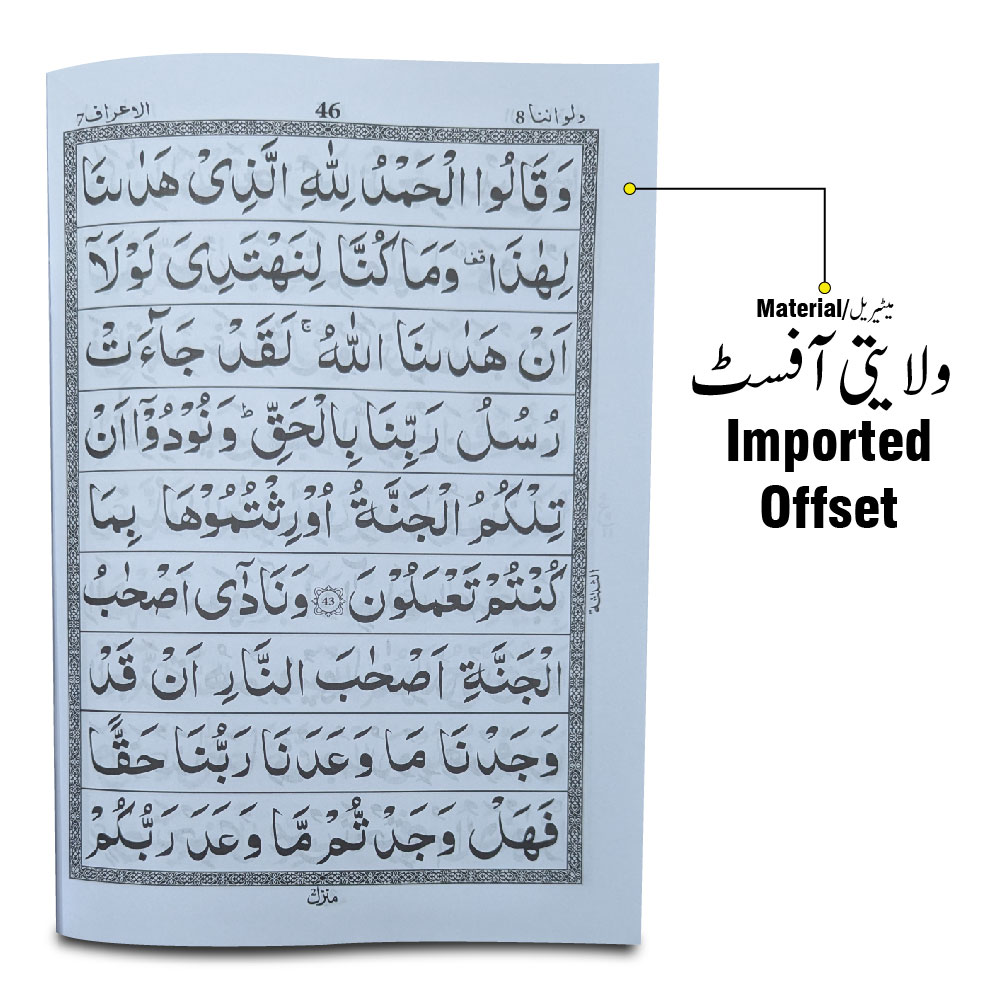 ولواننا 8
46
الاعراف 7
وَ قَالُوا الْحَمْدُ لِلّٰهِ الَّذِیْ هَدٰىنَا
لِهٰذَا قف وَمَا كُنَّا لِنَهْتَدِیَ لَوْلَاۤ
اَنْ هَدٰىنَا اللّٰهُ ۚ لَقَدْ جَآءَتْ
رُسُلُ رَبِّنَا بِالْحَقِّ ؕ وَ نُوْدُوْۤا اَنْ
تِلْكُمُ الْجَنَّةُ اُوْرِثْتُمُوْهَا بِمَا
كُنْتُمْ تَعْمَلُوْنَ 43 وَ نَادٰۤی اَصْحٰبُ
الْجَنَّةِ اَصْحٰبَ النَّارِ اَنْ قَدْ
وَجَدْنَا مَا وَعَدَنَا رَبُّنَا حَقًّا
فَهَلْ وَجَدْتُّمْ مَّا وَعَدَ رَبُّكُمْ
الثلثة
منزل ٢
Material/میٹیریل
ولایتی آفسٹ
Imported
Offset